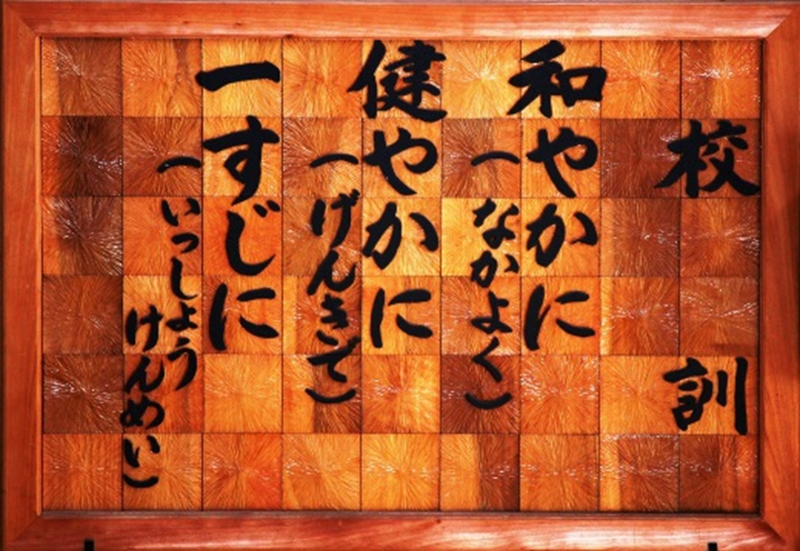 校訓
和やかに
（なかよく）
健やかに
（げんきで）
一すじに
（いっしょう
けんめい）